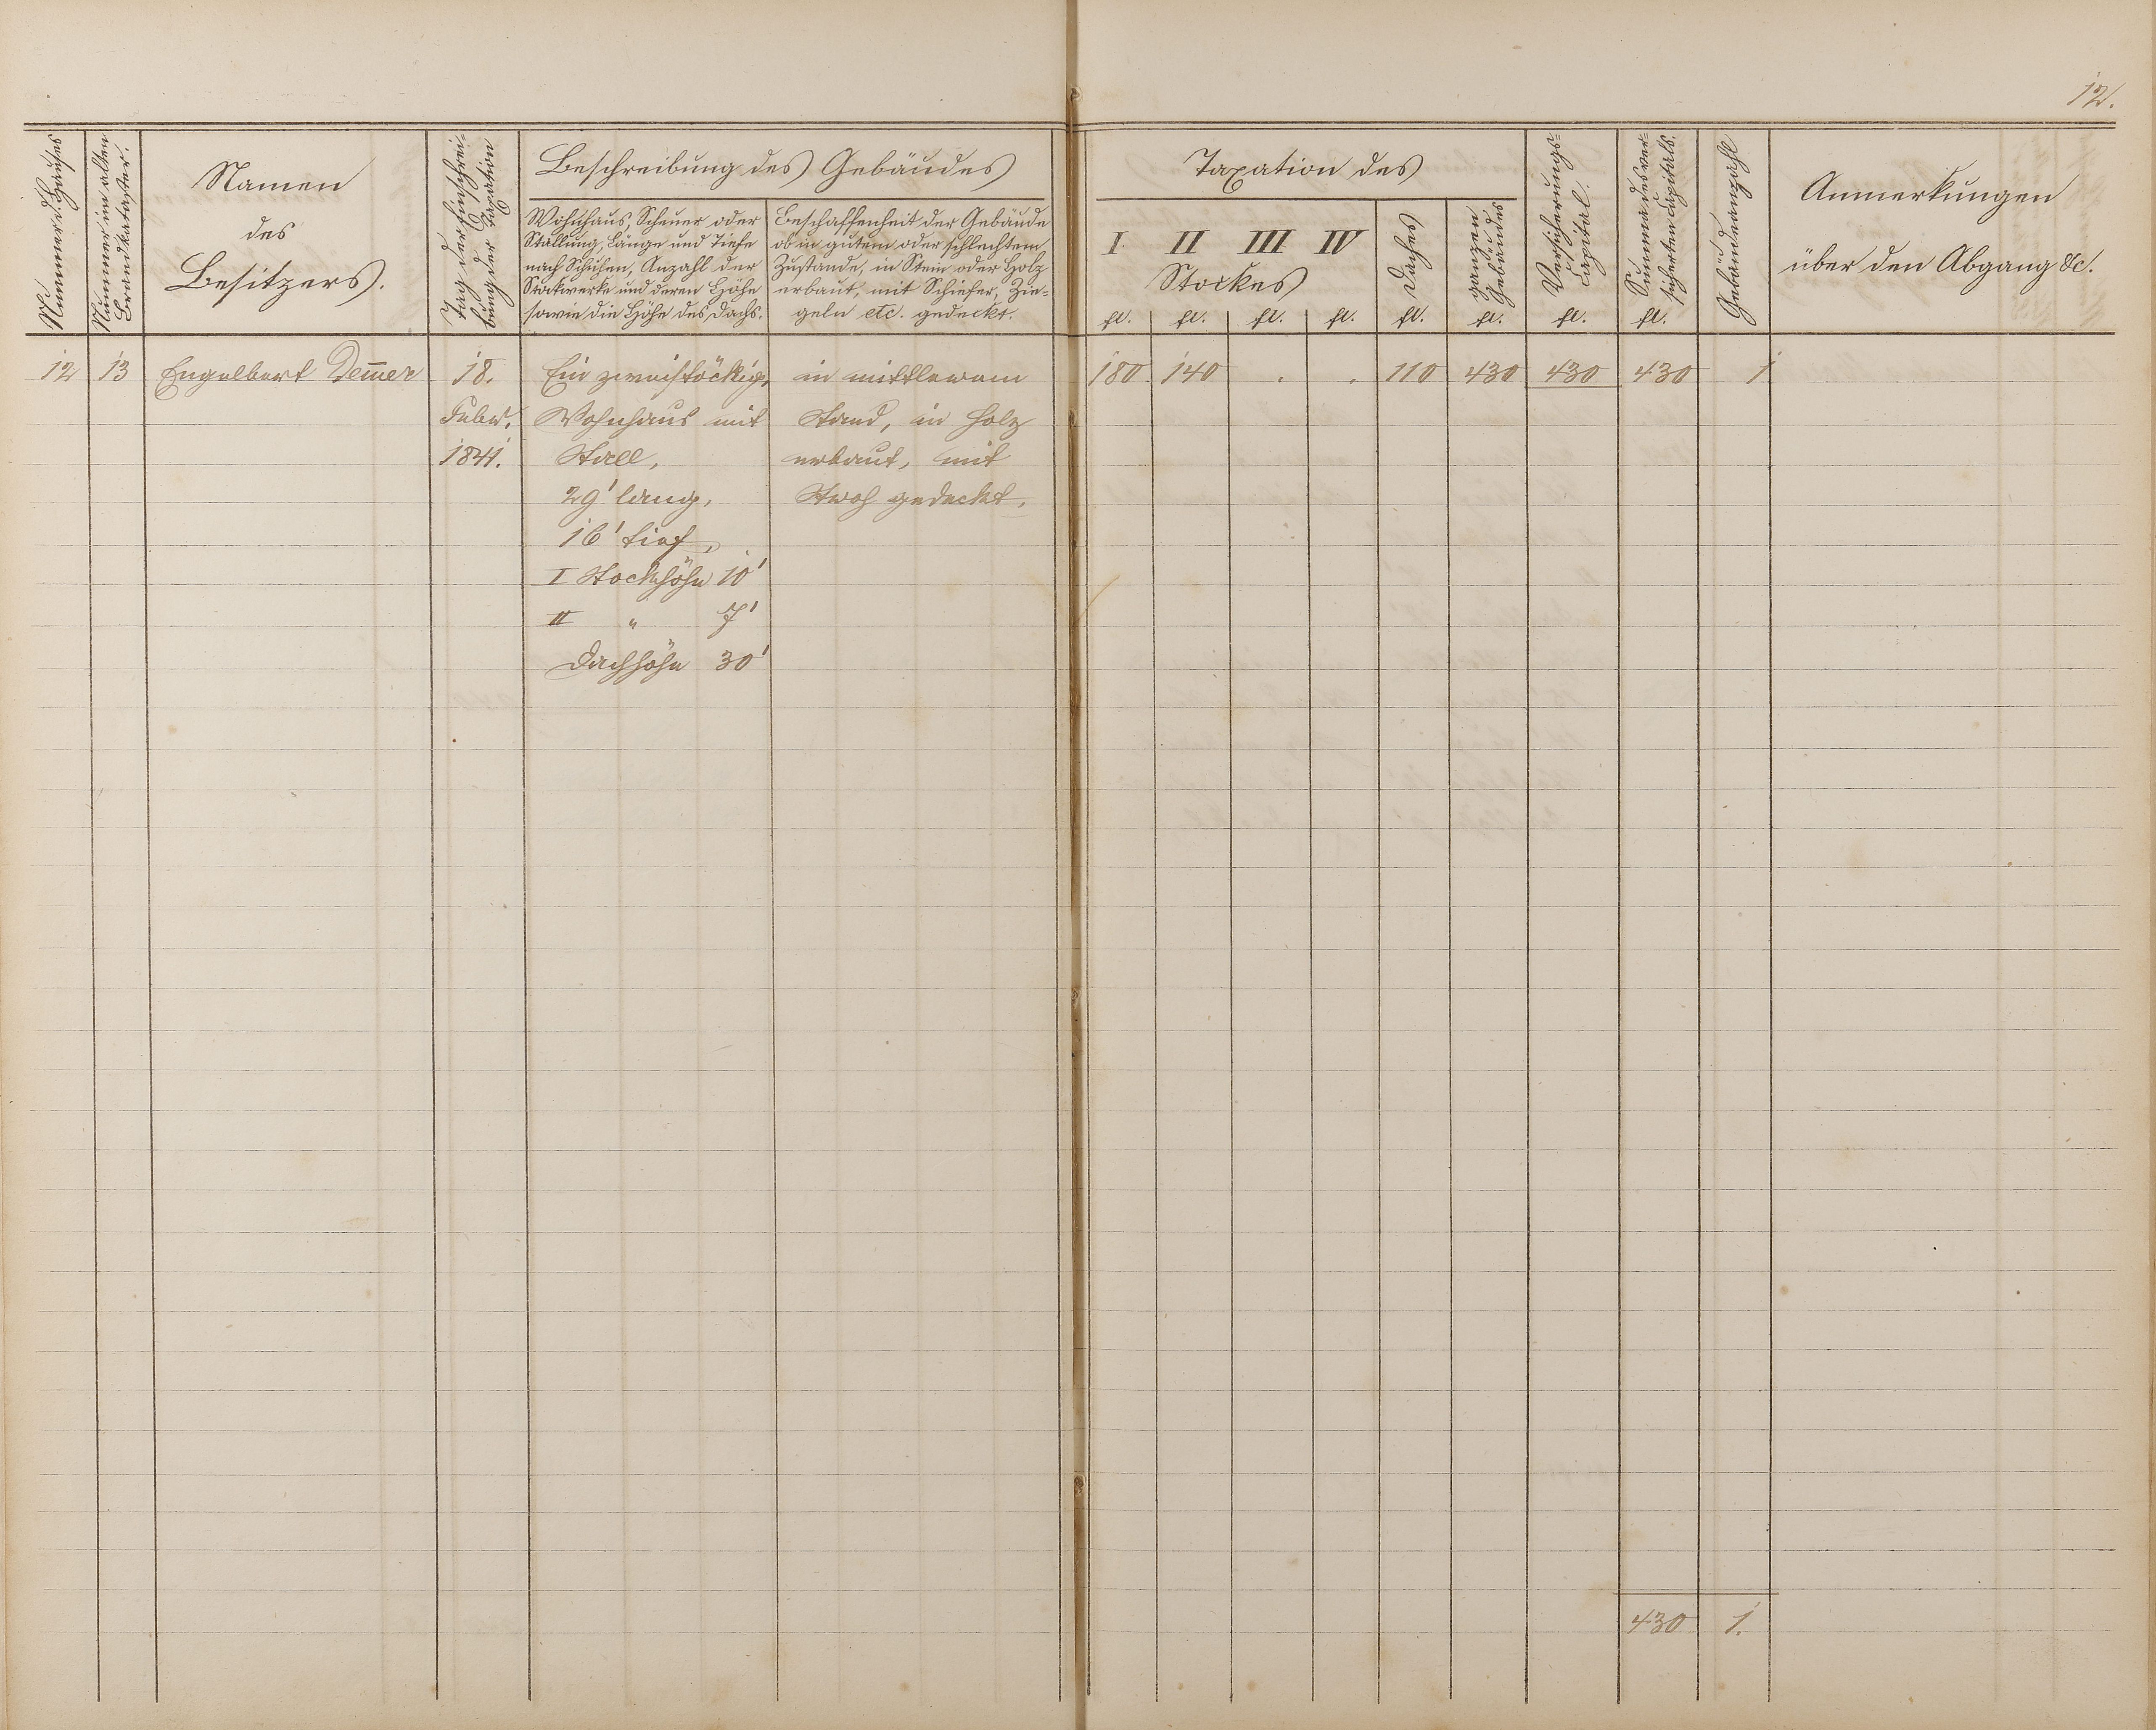 12.
Nummer d. Hauses
Nummer im alten
Brandkataster.
Namen
des
Besitzers.
Tag der Einschrei-
bung der Taxation
Beschreibung des Gebäudes
Wohnhaus, Scheuer oder
Stallung, Länge und Tiefe
nach Schuhen, Anzahl der
Stockwerke und deren Höhe
sowie die Höhe des Dachs.
Beschaffenheit der Gebäude
ob in gutem oder schlechtem
Zustande, in Stein oder Holz
erbaut, mit Schiefer, Zie-
geln etc. gedeckt.
Taxation des
I II III IV
Stockes
Daches
ganzen
Gebäudes
Versicherungs-
Capital.
Summa des ver-
sicherten Capitals.
Gebäudeanzahl
Anmerkungen
über den Abgang &c.
fl. fl. fl. fl. fl. fl. fl. fl.
12 13 Engelbert Dem̅er 18. Ein zweistöckig. in mittlerem 180 140 . . 110 430 430 430 1
Febr. Wohnhaus mit Stand, in Holz
1841. Stall, erbaut, mit
29' lang, Stroh gedeckt.
16' tief,
I Stockhöhe 10'
II " 7'
Dachhöhe 30'
430 1.